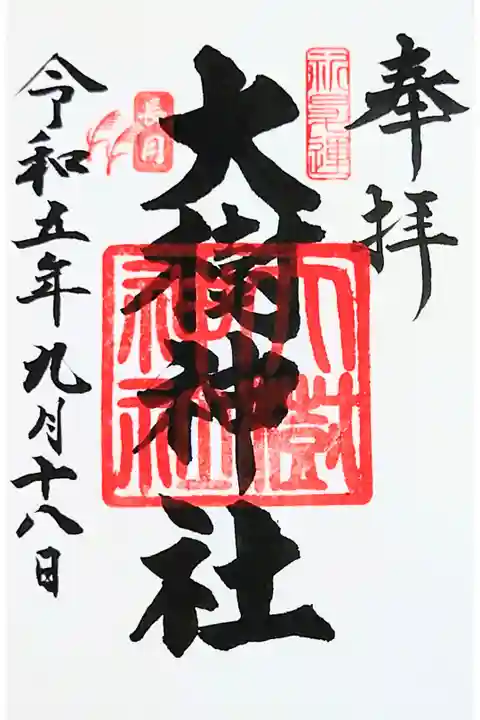 奉拝
大樹神社
大樹
神社
長月
令和五年九月十八日